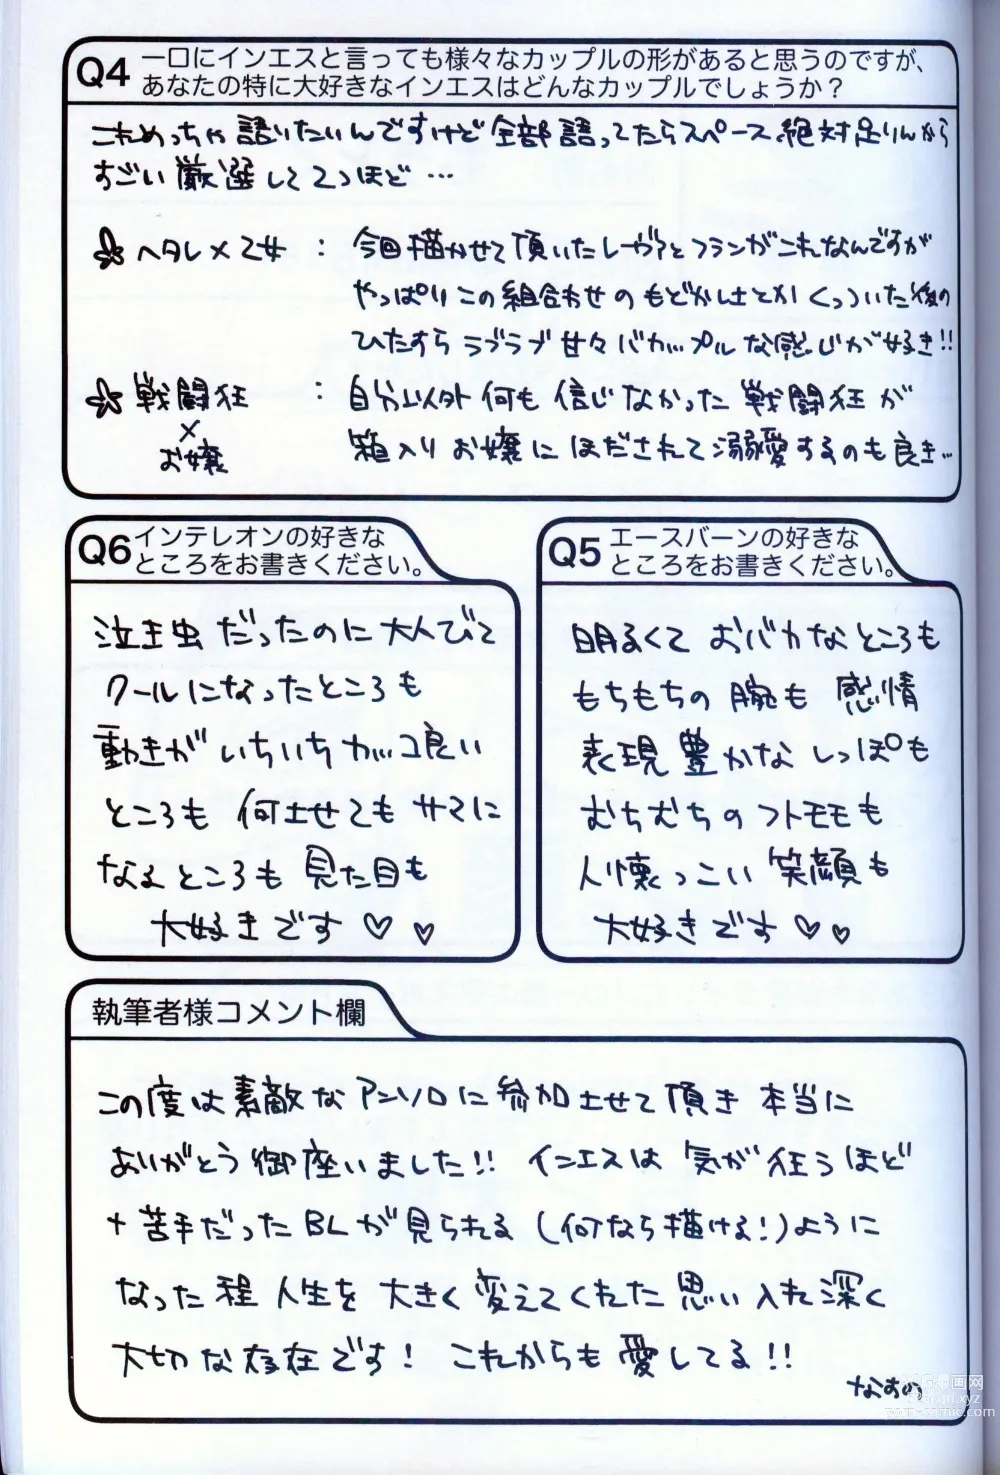 Q4 一口にインエスと言っても様々なカップルの形があると思うのですが、
あなたの特に大好きなインエスはどんなカップルでしょうか？
これめっちゃ語りたいんですけど全部語ってたらスペース絶対足りんから
すごい厳選して2つほど…
☆ヘタレ×乙女 : 今回描かせて頂いたレヴァとフランがこれなんですが
やっぱりこの組合わせのもどかしさとかくっついた後の
ひたすらラブラブ甘々バカップルな感じが好き!!
☆戦闘狂×お嬢 : 自分以外何も信じなかった戦闘狂が
箱入りお嬢にほだされて溺愛するのも良き…
Q6 インテレオンの好きな
ところをお書きください。
泣き虫だったのに大人びて
クールになったところも
動きがいちいちカッコ良い
ところも何させてもサマに
なるところも見た目も
大好きです♡♡
Q5 エースバーンの好きな
ところをお書きください。
明るくておバカなところも
もちもちの腕も感情
表現豊かなしっぽも
むちむちのフトモモも
人懐っこい笑顔も
大好きです♡♡
執筆者様コメント欄
この度は素敵なアンソロに参加させて頂き本当に
ありがとう御座いました!! インエスは気が狂うほど
+苦手だったBLが見られる(何なら描ける!)ように
なった程人生を大きく変えてくれた思い入れ深く
大切な存在です! これからも愛してる!!
なすの
porn-comic.com